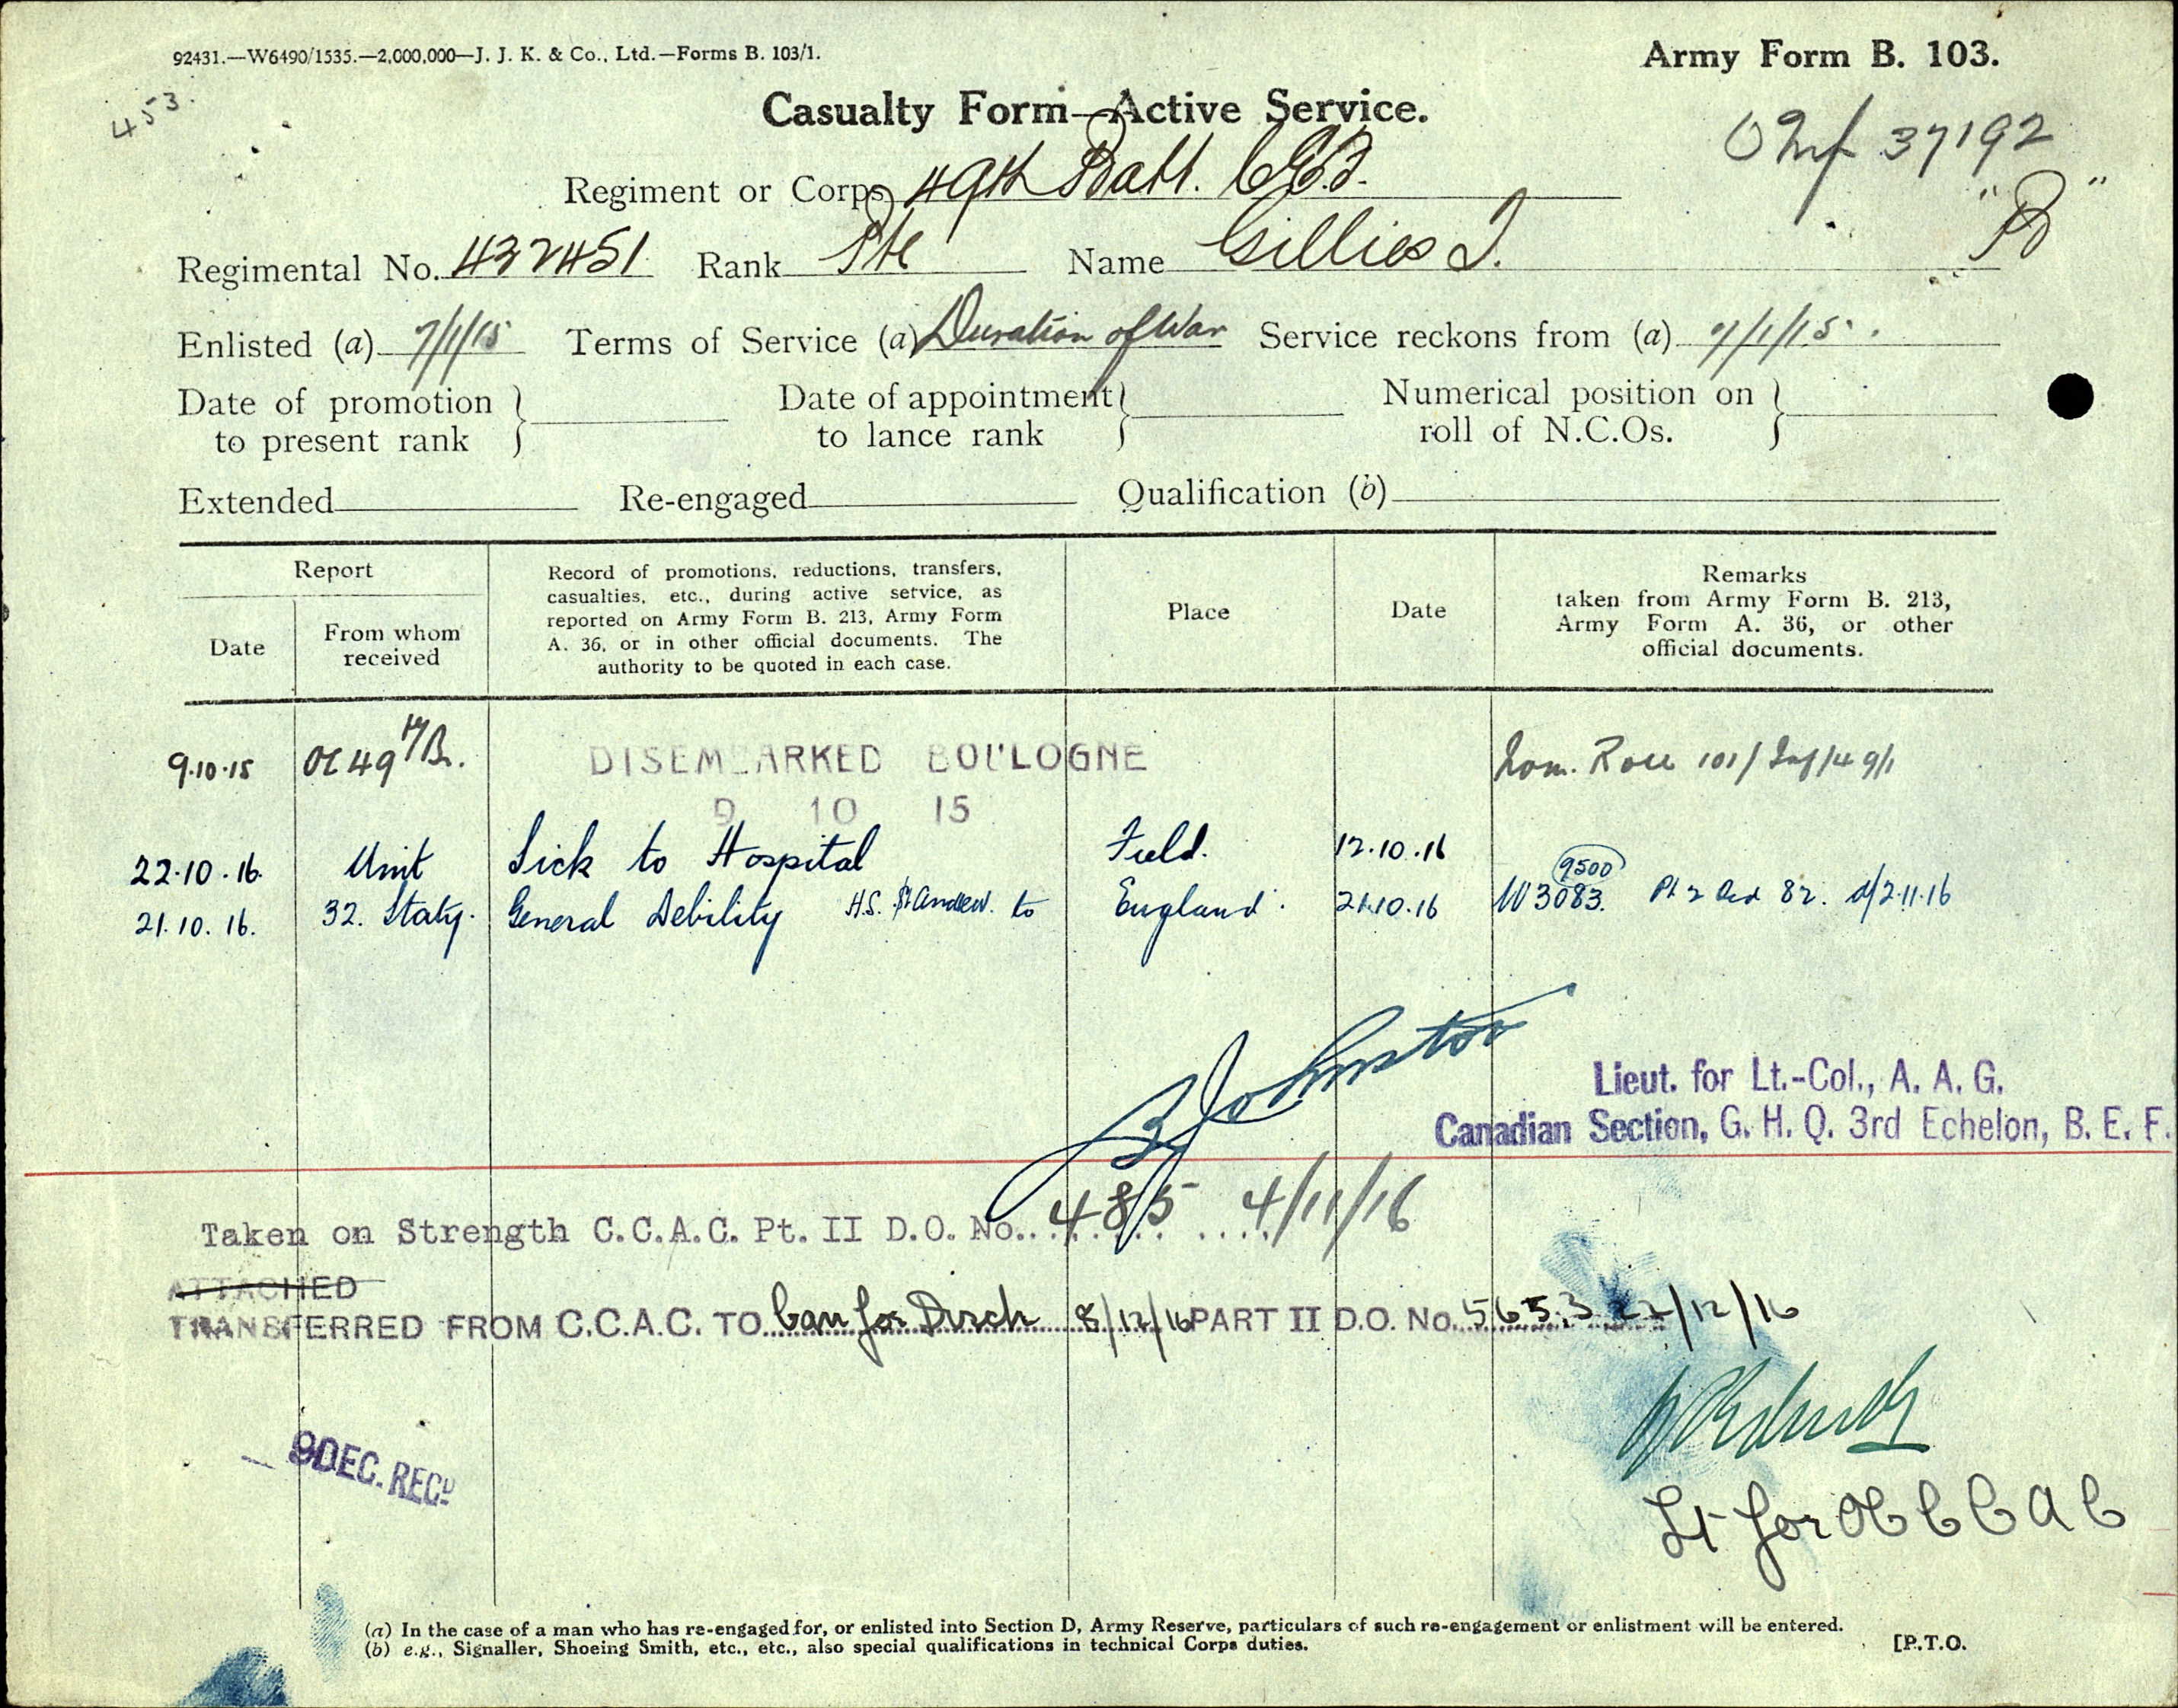 92431.—W6490/1535.—2,000,000—J. J. K. & Co., Ltd.—Forms B. 103/1.
Army Form B. 103.
453.
Casualty Form—Active Service.
37192
Regiment or Corps 49th Batt. C.E.F.
"B"
Regimental No. 432451 Rank Pte Name Gillies J.
Enlisted (a) 7/1/15 Terms of Service (a) Duration of War Service reckons from (a) 7/1/15.
Date of promotion to present rank } Date of appointment to lance rank } Numerical position on roll of N.C.Os. }
Extended Re-engaged Qualification (b)
Report
Date
From whom received
Record of promotions, reductions, transfers,
casualties, etc., during active service, as
reported on Army Form B. 213, Army Form
A. 36, or in other official documents. The
authority to be quoted in each case.
Place
Date
Remarks
taken from Army Form B. 213,
Army Form A. 36, or other
official documents.
9.10.15 OC 49th Bn. DISEMBARKED BOULOGNE Nom. Roll 101/Inf/49/1
9 10 15
22.10.16. Unit Sick to Hospital Field. 12.10.16
9500
21.10.16. 32. Staty. General Debility H.S. St Andrew. to England. 21.10.16 W3083. Pt 2 Ord 82. d/2.11.16
Johnston
Lieut. for Lt.-Col., A. A. G.
Canadian Section, G. H. Q. 3rd Echelon, B. E. F.
Taken on Strength C.C.A.C. Pt. II D.O. No. 485 4/11/16
ATTACHED
TRANSFERRED FROM C.C.A.C. TO Can for Disch 8/12/16 PART II D.O. No. 5653 27/12/16
9 DEC. RECD
Lt for OC CCAC
(a) In the case of a man who has re-engaged for, or enlisted into Section D, Army Reserve, particulars of such re-engagement or enlistment will be entered.
(b) e.g., Signaller, Shoeing Smith, etc., etc., also special qualifications in technical Corps duties.
[P.T.O.